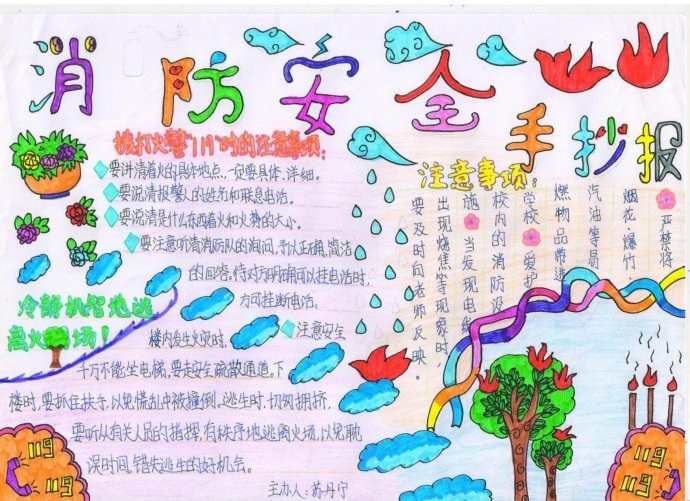 消防安全
手抄报
拨打火警"119"时的注意事项:
要讲清着火的具体地点,一定要具体、详细。
要说清报警人的姓名和联息电话。
要说清是什么东西着火和火势的大小。
要注意听清消防队的询问,予以正确,简洁
的回答,待对方明确可以挂电话时,
方可挂断电话。
冷静机智地逃
离火场!
注意安全
楼内发生火灾时,
千万不能坐电梯,要走安全疏散通道。下
楼时,要抓住扶手,以免慌乱中被撞倒。逃生时,切勿拥挤,
要听从有关人员的指挥,有秩序地逃离火场,以免耽
误时间,错失逃生的好机会。
主办人:苏丹宁
注意事项:
严禁将
烟花、爆竹
汽油等易
燃物品带进
学校 爱护
校内的消防设
施 当发现电线
出现烧焦等现象时
要及时向老师反映。
119
119
119
119